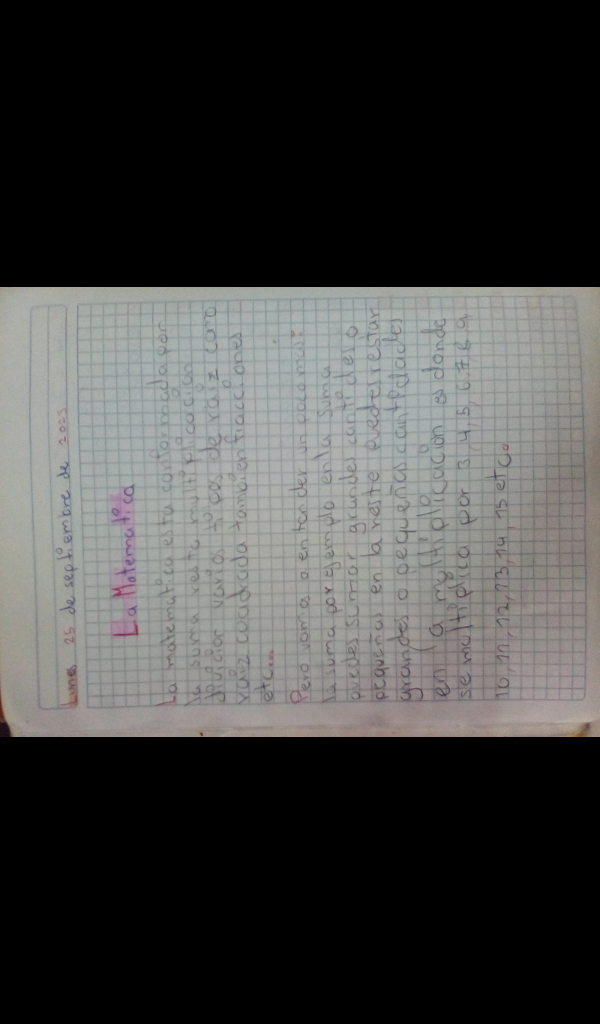 Lunes 25 de septiembre de 2023
La Matematica
La matematica esta conformada por
la suma resta multiplicación
divicion varios tipos de raiz como
raiz cuadrada tambien fracciones
etc...
Pero vamos a entender un poco mas:
la suma por ejemplo en la suma
puedes sumar grandes cantidades o
pequeñas en la resta puedes restar
grandes o pequeñas cantidades
en la multiplicación es donde
se multiplica por 3, 4, 5, 6, 7, 8, 9
10, 11, 12, 13, 14, 15 etc.